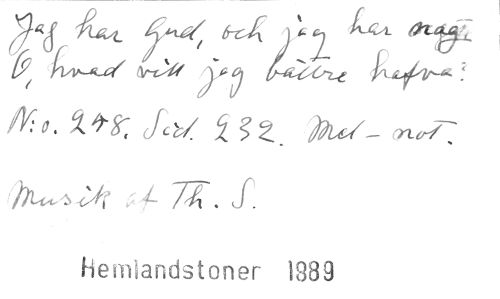 Jag har Gud, och jag har nog
O, hvad vill jag bättre hafva?
N:o. 248. Sid. 232. Mel-not.
Musik af Th. S.
Hemlandstoner 1889